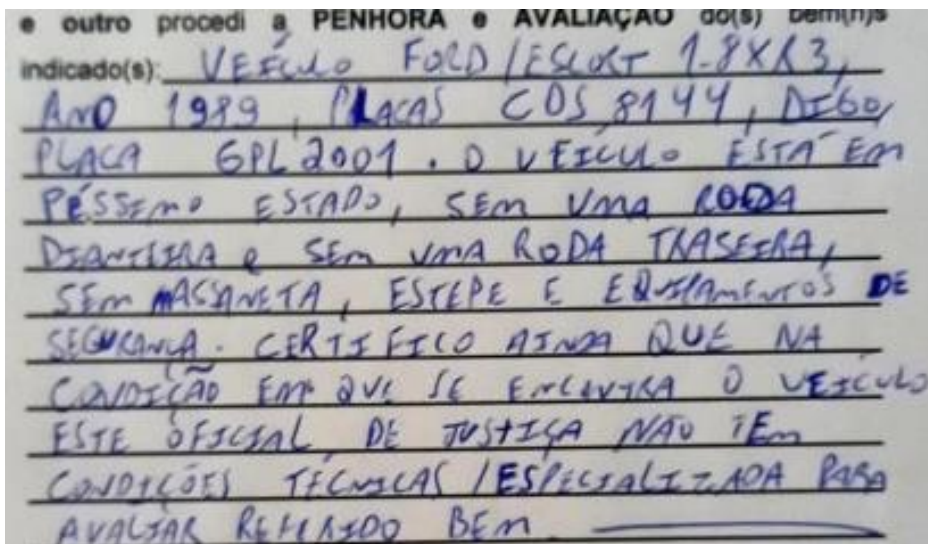 e outro procedi a PENHORA e AVALIAÇÃO do(s) bem(n)s
indicado(s): VEÍCULO FORD/ESCORT 1.8 XR3,
ANO 1989, PLACAS CDS 8144, DIGO,
PLACA GPL 2001. O VEÍCULO ESTÁ EM
PÉSSIMO ESTADO, SEM UMA RODA
DIANTEIRA e SEM UMA RODA TRASEIRA,
SEM MASSANETA, ESTEPE E EQUIPAMENTOS DE
SEGURANÇA. CERTIFICO AINDA QUE NA
CONDIÇÃO EM QUE SE ENCONTRA O VEÍCULO
ESTE OFICIAL DE JUSTIÇA NÃO TEM
CONDIÇÕES TÉCNICAS/ESPECIALIZADA PARA
AVALIAR REFERIDO BEM